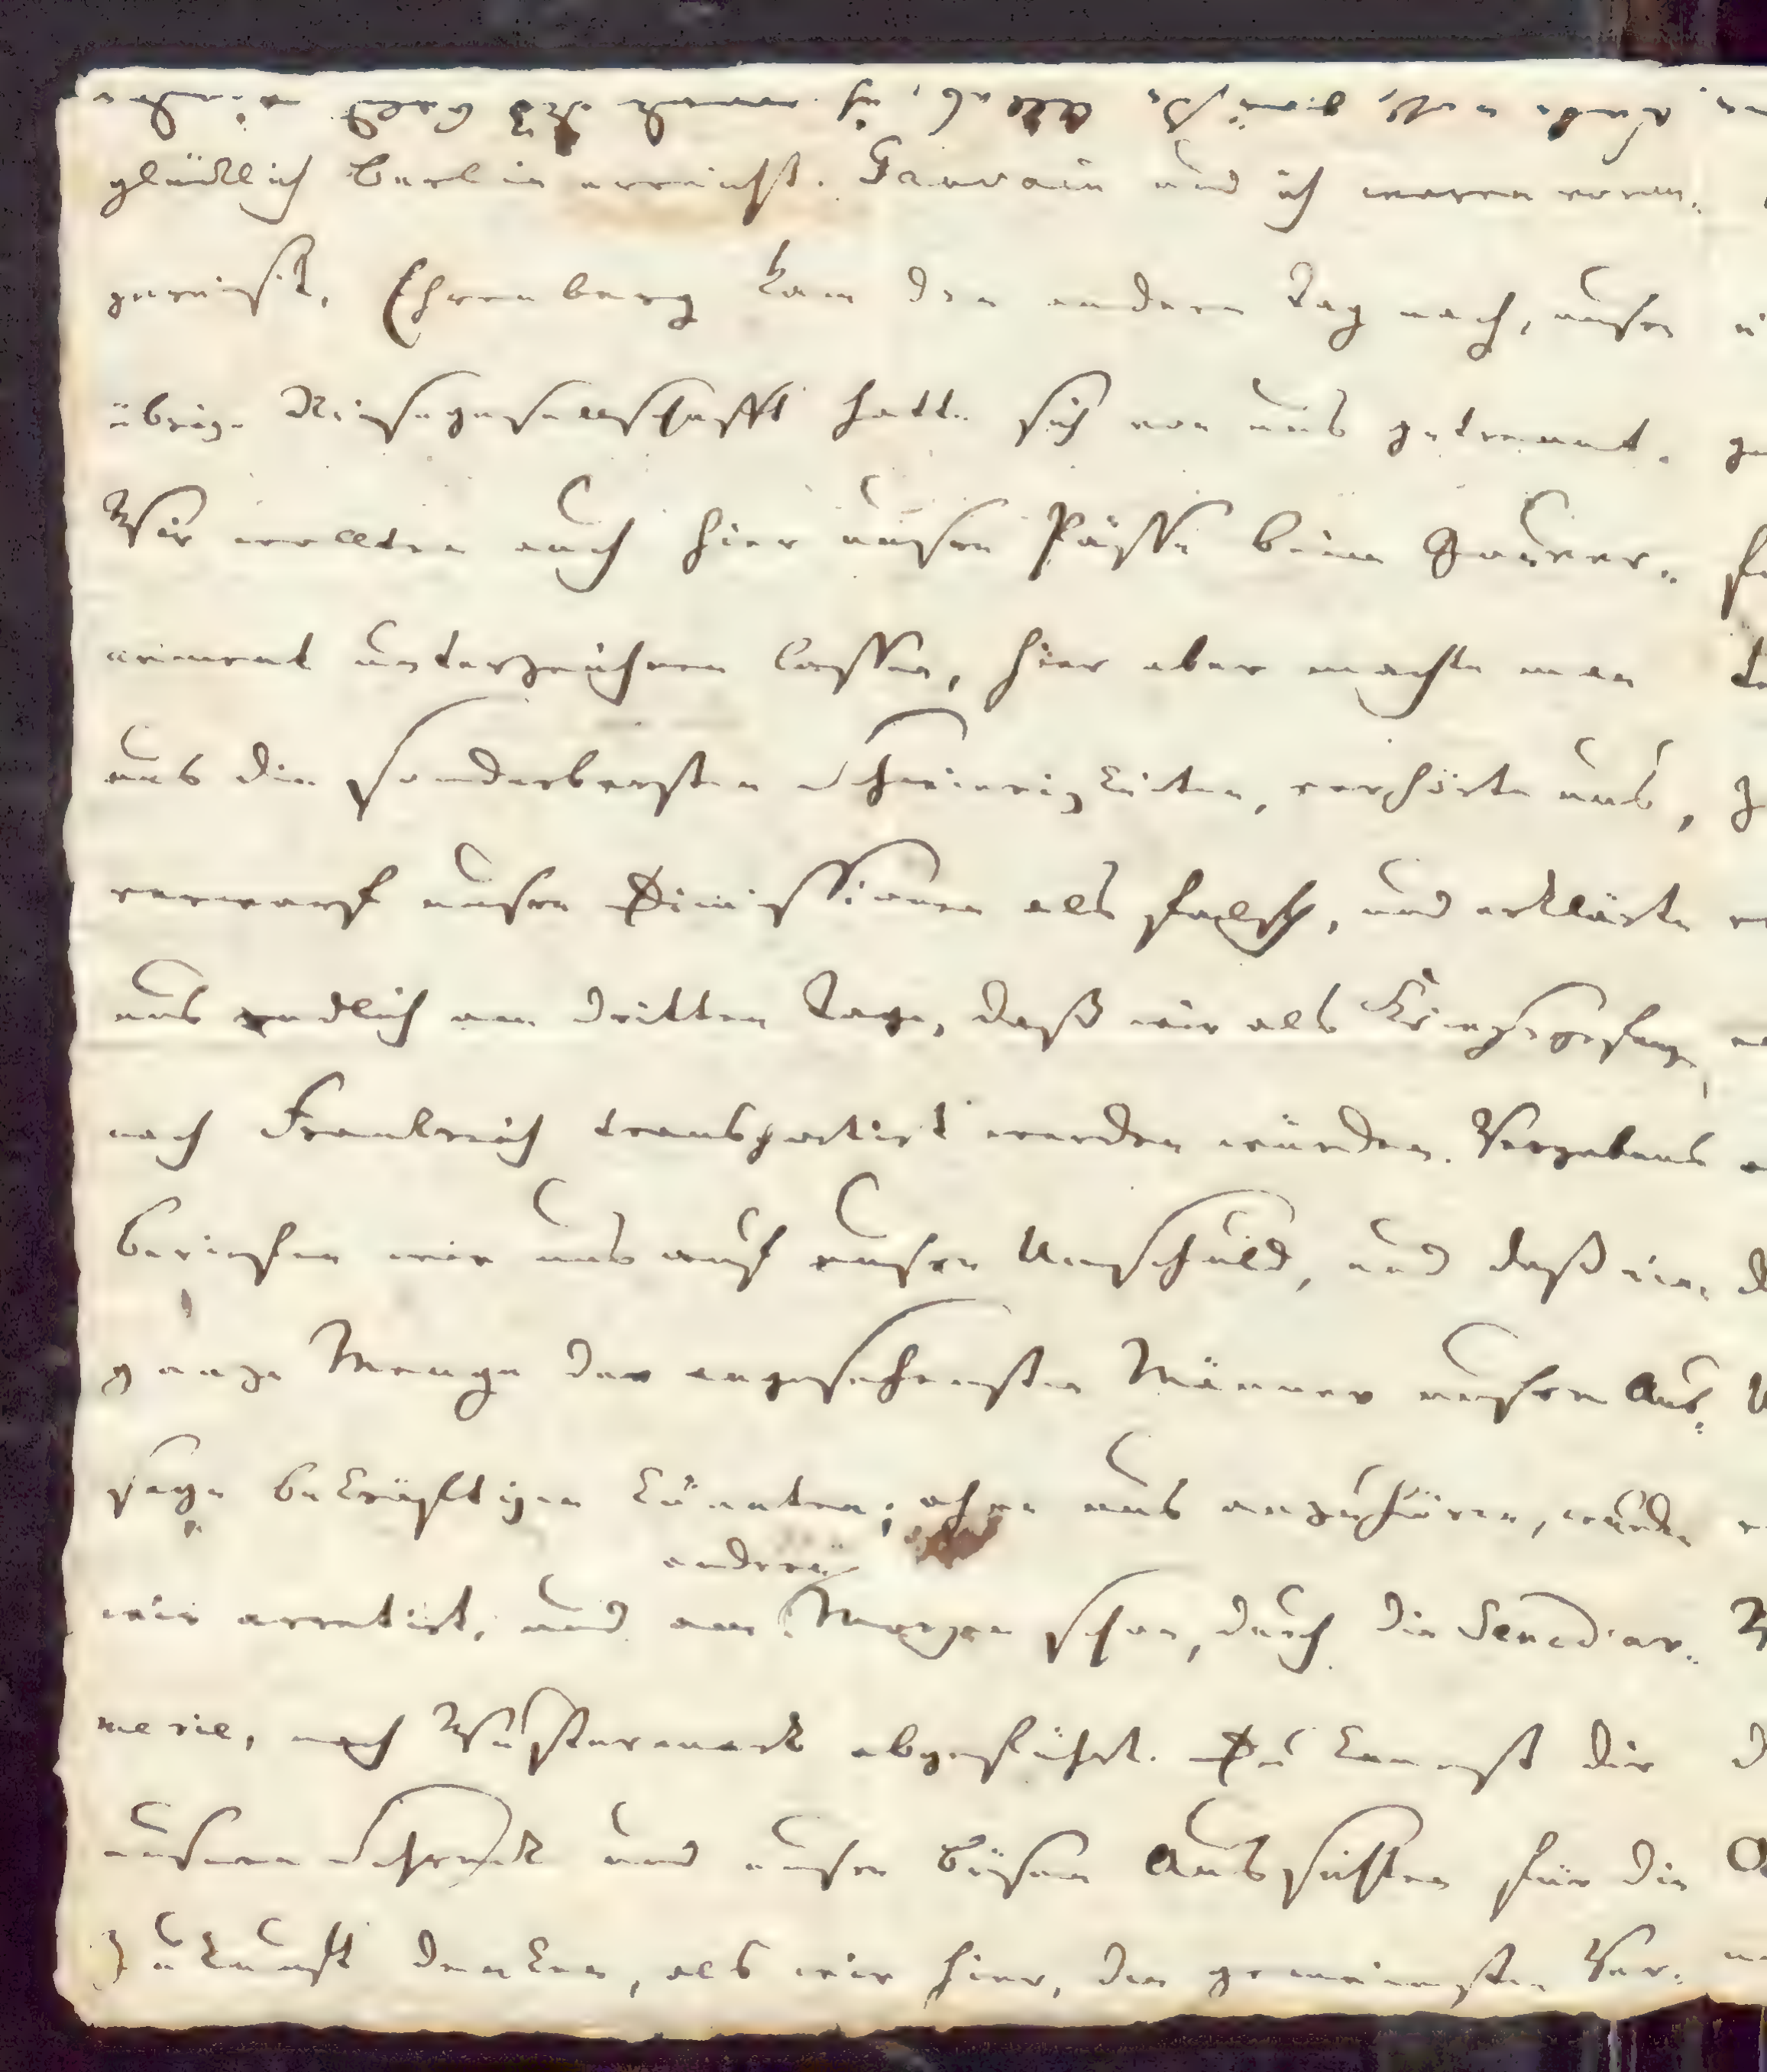 glücklich Berlin erreicht. Gravain und ich waren voran⸗
gereist, Ehrenberg kam den andern Tag nach, unsre
übrige Reisegesellschafft hatte sich von uns getrennt.
Wir wollten auch hier unsre Pässe beim Gouver⸗
nement unterzeichnen lassen, hier aber machte man
uns die sonderbarsten Schwierigkeiten, verhörte uns,
verwarf unsre Dimissionen als falsch, und erklärte
uns endlich am dritten Tage, daß wir als Kriegsgefang
nach Frankreich transportirt werden würden. Vergebens
beriefen wir uns auf unsre Unschuld, und daß eine
ganze Menge der angesehensten Männer unsre Aus⸗
sage bekräftigen könnten; ohne uns anzuhören, wurden
wir arretirt, und am andern Morgen schon, durch die Gensd'ar⸗
merie, nach Wustermark abgeführt. Du kannst dir
unsern Schreck und unsre bösen Aussichten für die
Zukunft denken, als wir hier, den gemeinsten Ver⸗